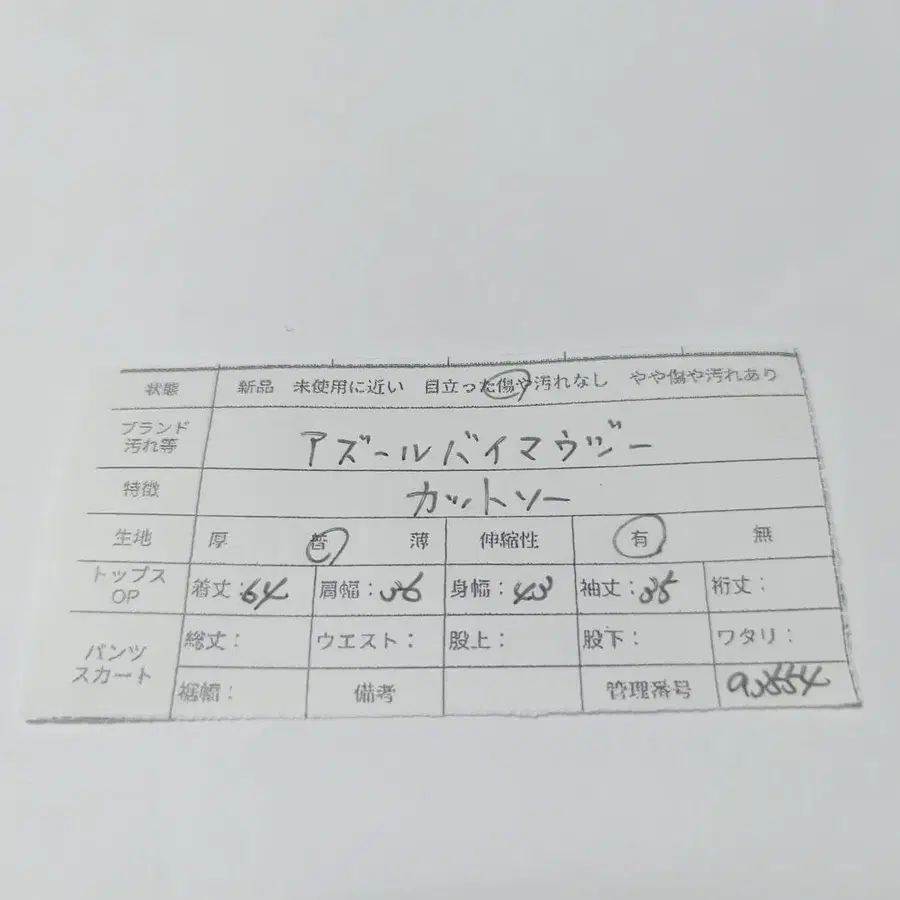 状態 新品 未使用に近い 目立った傷や汚れなし やや傷や汚れあり
ブランド
汚れ等 アズールバイマウジー
特徴 カットソー
生地 厚 普 薄 伸縮性 有 無
トップス
OP 着丈：64 肩幅：36 身幅：43 袖丈：35 裄丈：
パンツ
スカート 総丈： ウエスト： 股上： 股下： ワタリ：
裾幅： 備考 管理番号